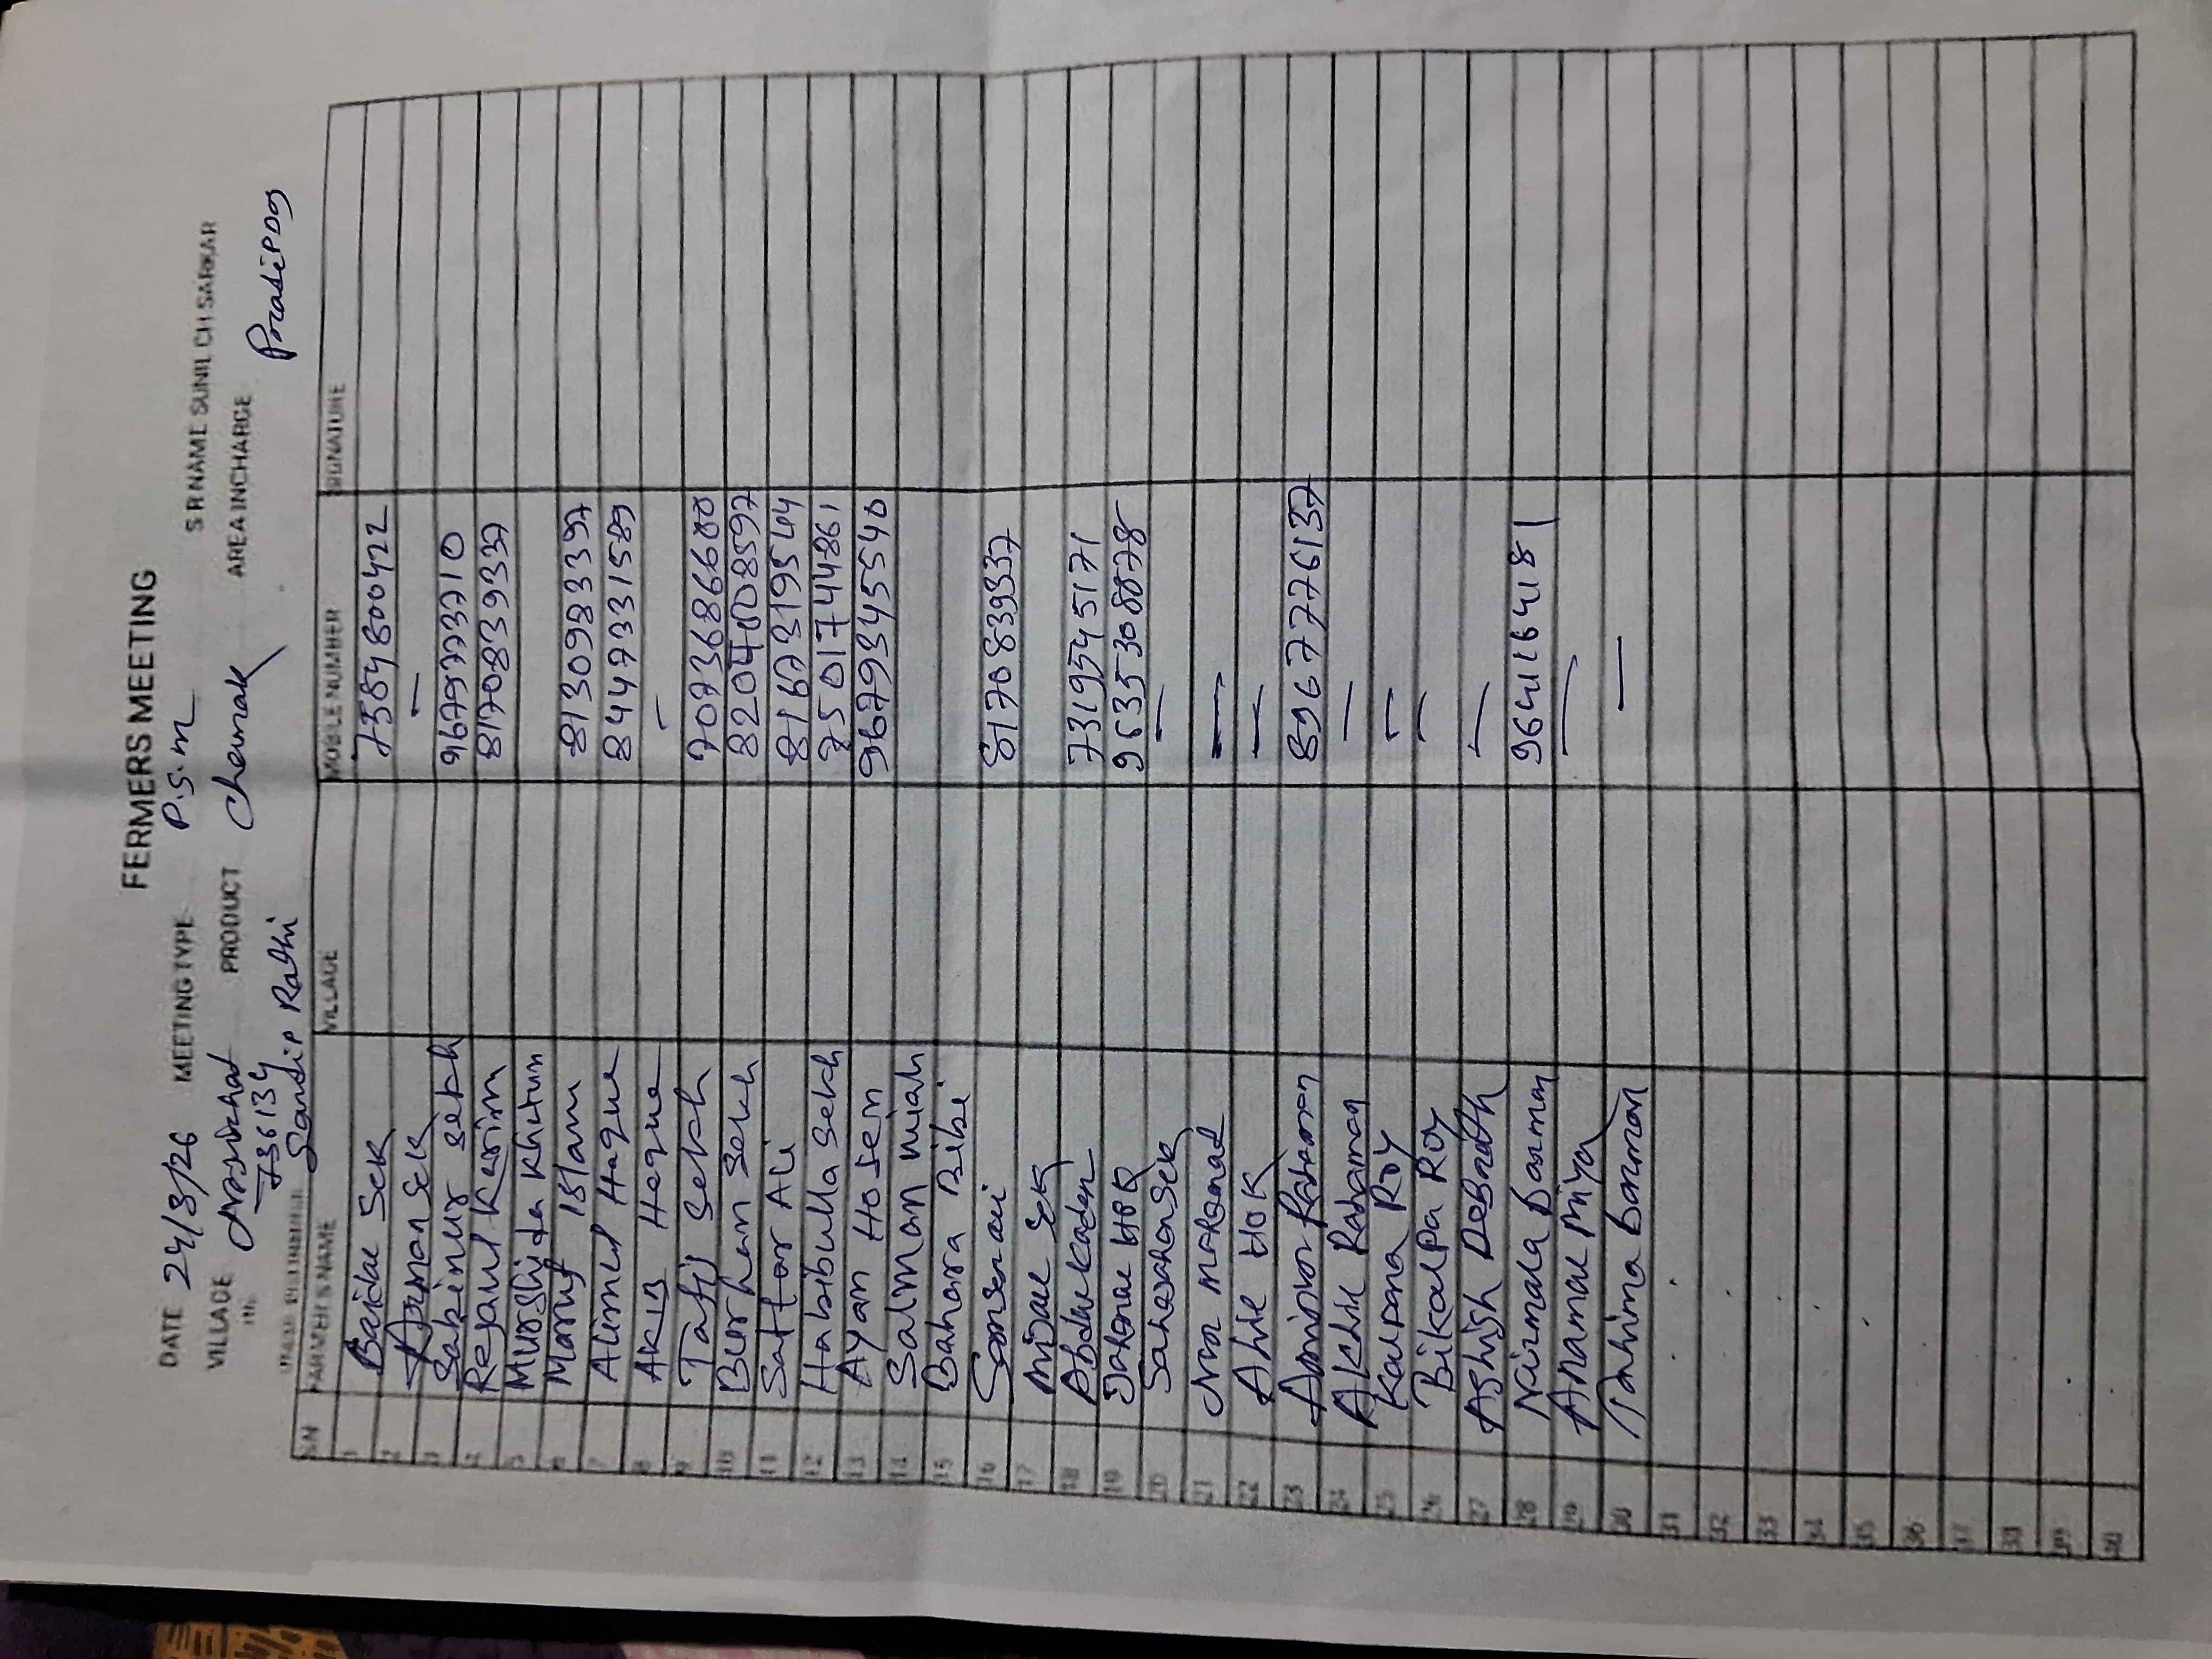 FERMERS MEETING
DATE 24/3/26 MEETING TYPE P.S.m S R NAME SUNIL CH SARKAR
VILLAGE PRODUCT Chamak AREA INCHARGE Pradip Das
736134
Sandip Rathi
SN FARMER NAME VILLAGE MOBILE NUMBER SIGNATURE
1 Sek 7358480042
2 Aynan Sek —
3 Sabinur Sekh 9679773710
4 Rejaul Karim 8170839337
5 Murshida Khatun
6 Maruf Islam 8130983397
7 Alimul Haque 8447331589
8 AKIB Heque —
9 Tafij Sekh 7073686600
10 Burhan Sekh
11 Sattar Ali
12 Habibulla Sekh 7501744861
13 Ayan Hosen 9679345540
14 Salman Miah
15 Bahara Bibi
16 8170839337
17 Sek
18 Abdul Kader 7319545171
19 HOK 9635308878
20 Sahajahan Sek —
21 Nur —
22 HOK —
23 Aminor Rahaman 8967776137
24 Rahaman —
25 Kalpana Roy —
26 Bikalpa Roy —
27 Ashish Debnath —
28 Nirmala Barman 964164181
29 Miya —
30 Tahima Barman —
31
32
33
34
35
36
37
38
39
40